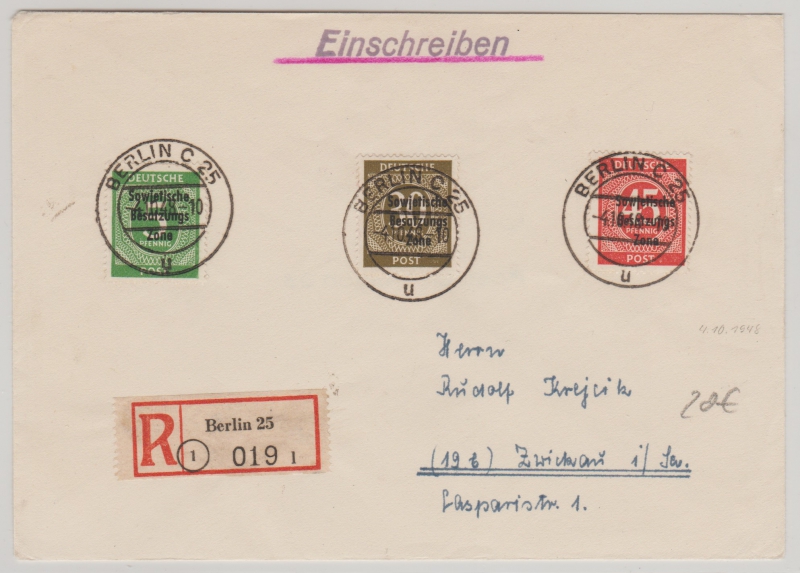 Einschreiben
BERLIN C 25
DEUTSCHE
Sowjetische
Besatzungs
Zone
PFENNIG
POST
u
BERLIN C 25
DEUTSCHE
Sowjetische
Besatzungs
Zone
4.10.48
POST
u
BERLIN C 25
DEUTSCHE
Sowjetische
45
Besatzungs
PFENNIG
Zone
POST
u
4.10.1948
Herrn
Rudolf Krejcik
28€
(19b) Zwickau i/Sa.
Casparistr. 1.
R
Berlin 25
1
019 1